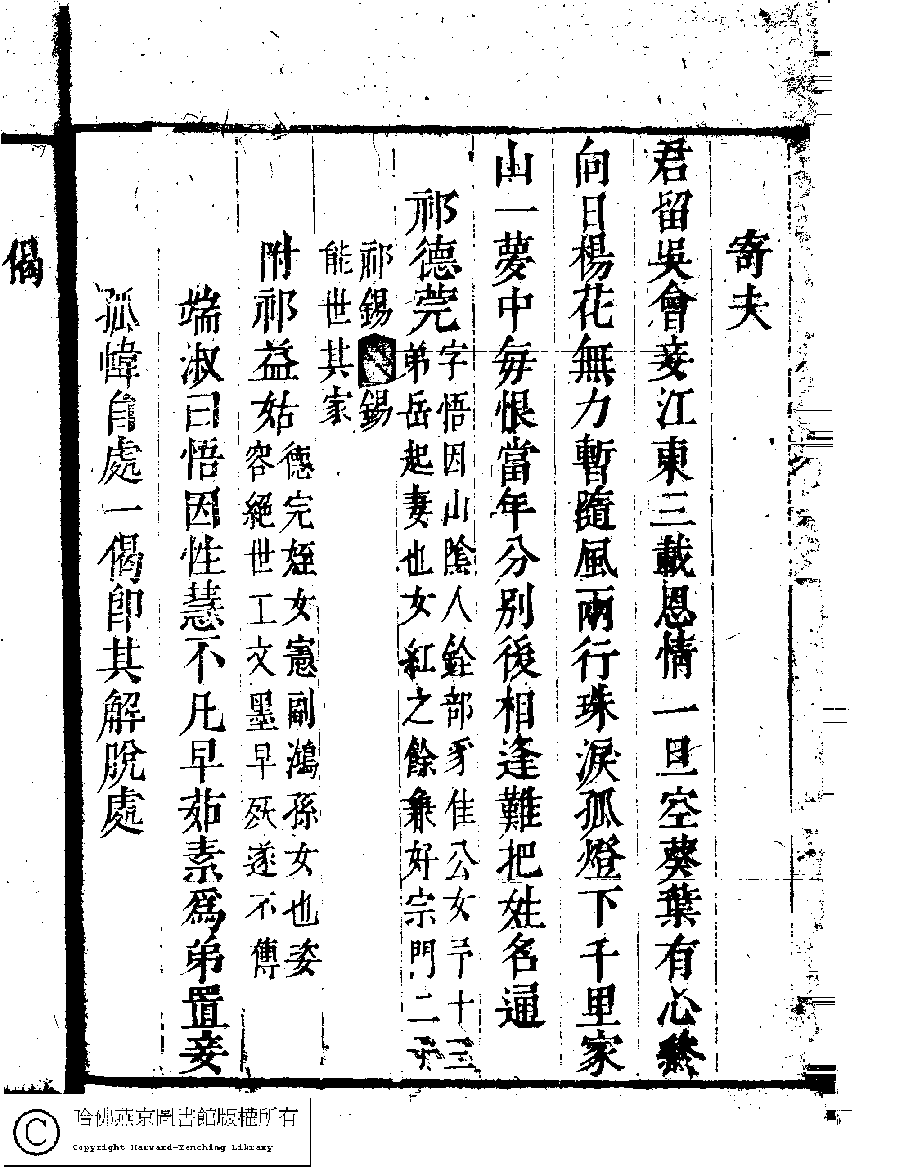 寄夫
君留吳會妾江東三載恩情一旦空葵葉有心終
向日楊花無力暫隨風兩行珠淚孤燈下千里家
山一夢中每恨當年分別後相逢難把姓名通
祁德茝
字悟因山陰人銓部豸佳公女予十三
弟岳起妻也女紅之餘兼好宗門二子
祁錫 錫
能世其家
附祁益姑
德完姪女寤副鴻孫女也姿
容絕世工文墨早殀遂不傳
端淑曰悟因性慧不凡早茹素爲弟置妾
孤幃自處一偈卽其解脫處
偈
哈佛燕京圖書館版權所有
Copyright Harvard-Yenching Library